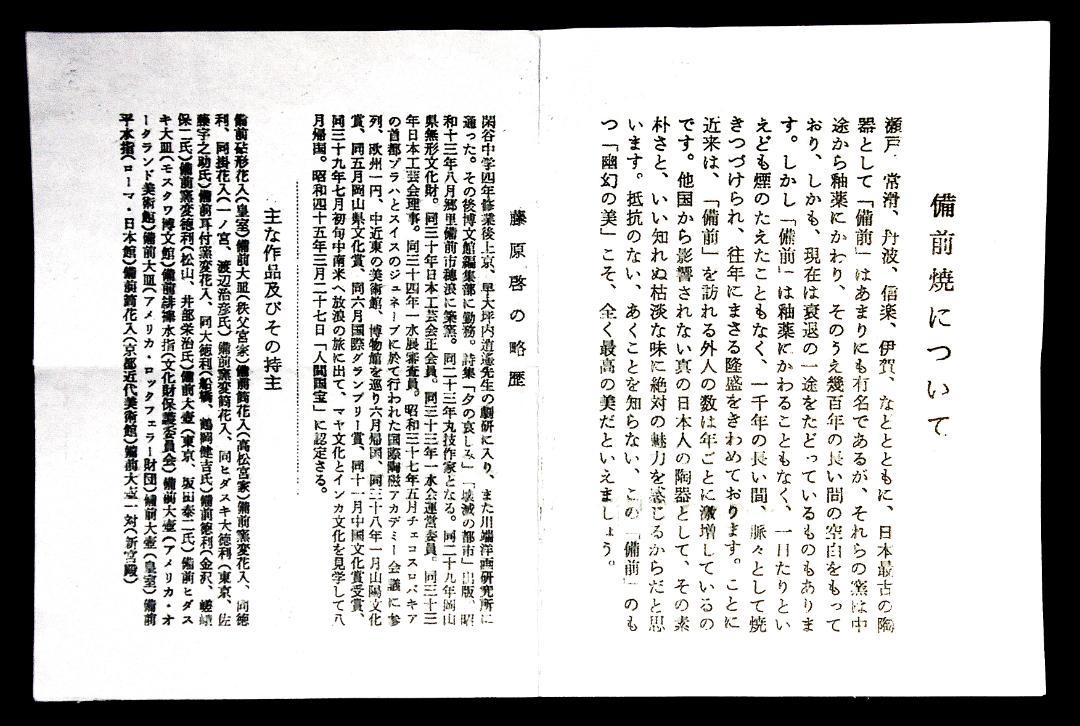 備前焼について
瀬戸、常滑、丹波、信楽、伊賀、などとともに、日本最古の陶
器として「備前」はあまりにも有名であるが、それらの窯は中
途から釉薬にかわり、そのうえ幾百年の長い間の空白をもって
おり、しかも、現在は衰退の一途をたどっているものもありま
す。しかし「備前」は釉薬にかわることもなく、一日たりとい
えども煙のたえたこともなく、一千年の長い間、脈々として焼
きつづけられ、往年にまさる隆盛をきわめております。ことに
近来は、「備前」を訪れる外人の数は年ごとに激増しているの
です。他国から影響されない真の日本人の陶器として、その素
朴さと、いい知れぬ枯淡な味に絶対の魅力を感じるからだと思
います。抵抗のない、あくことを知らない、この「備前」のも
つ「幽幻の美」こそ、全く最高の美だといえましょう。
藤原啓の略歴
閑谷中学四年修業後上京、早大坪内逍遥先生の劇研に入り、また川端洋画研究所に
通った。その後博文館編集部に勤務。詩集「夕の哀しみ」「壊滅の都市」出版、昭
和十三年八月郷里備前市穂浪に築窯。同二十三年丸技作家となる。同二十九年岡山
県無形文化財。同三十年日本工芸会正会員。同三十三年一水会運営委員。同三十三
年日本工芸会理事。同三十四年一水展審査員。昭和三十七年五月チェコスロバキア
の首都プラハとスイスのジュネーブに於て行われた国際陶磁アカデミー会議に参
列、欧州一円、中近東の美術館、博物館を巡り六月帰国、同三十八年一月山陽文化
賞、同五月岡山県文化賞、同六月国際グランプリー賞、同十一月中国文化賞受賞、
同三十九年七月初旬中南米へ放浪の旅に出て、マヤ文化とインカ文化を見学して八
月帰国。昭和四十五年三月二十七日「人間国宝」に認定さる。
主な作品及びその持主
備前砧形花入(皇室)備前大皿(秩父宮家)備前筒花入(高松宮家)備前窯変花入、同徳
利、同掛花入(一ノ宮、渡辺治彦氏)備前窯変筒花入、同ヒダスキ大徳利(東京、佐
藤字之助氏)備前耳付窯変花入、同大徳利(船橋、鶴岡健吉氏)備前徳利(金沢、嵯峨
保二氏)備前窯変徳利(松山、井部栄治氏)備前大壷(東京、坂田泰二氏)備前ヒダス
キ大皿(モスクワ博文館)備前緋襷水指(文化財保護委員会)備前大壷(アメリカ・オ
ークランド美術館)備前大皿(アメリカ・ロックフェラー財団)備前大壷(皇室)備前
平水指(ローマ・日本館)備前筒花入(京都近代美術館)備前大壷一対(新宮殿)